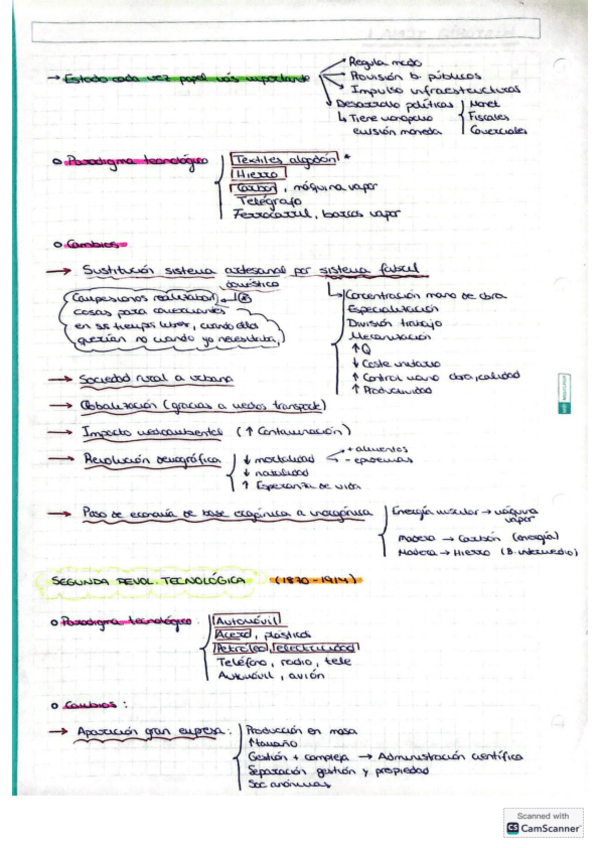 → Estado cada vez papel más importante
→ Regula mcdo
→ Provisión b. públicos
→ Impulso infraestructuras
→ Desarrollo políticas { Monet
Fiscales
Comerciales
↳ Tiene monopolio
emisión moneda
o Paradigma tecnológico { Textiles algodón *
Hierro
Carbón, máquina vapor
Telégrafo
Ferrocarril, barcos vapor
o Cambios
→ Sustitución sistema artesanal por sistema fabril
doméstico
Campesinos realizaban
cosas para comerciantes
en sus tiempos libres, cuando ellos
querían no cuando yo necesitaba,
Concentración mano de obra
Especialización
División trabajo
Mecanización
↑ Q
↓ Coste unitario
↑ Control mano obra, calidad
↑ Productividad
→ Sociedad rural a urbana
→ Globalización (gracias a medios transporte)
→ Impacto medioambiental (↑ Contaminación)
→ Revolución demográfica { ↓ mortalidad
+ alimentos
- epidemias
↓ natalidad
↑ Esperanza de vida
→ Paso de economía de base orgánica a inorgánica { Energía muscular → máquina
vapor
Madera → Carbón (energía)
Madera → Hierro (B. intermedio)
SEGUNDA REVOL. TECNOLÓGICA (1870-1914)
o Paradigma tecnológico: { Automóvil
Acero, plásticos
Petróleo, electricidad
Teléfono, radio, tele
Automóvil, avión
o Cambios:
→ Aparición gran empresa: { Producción en masa
↑ tamaño
Gestión + compleja → Administración científica
Separación gestión y propiedad
Soc anónimas
Scanned with
CS CamScanner